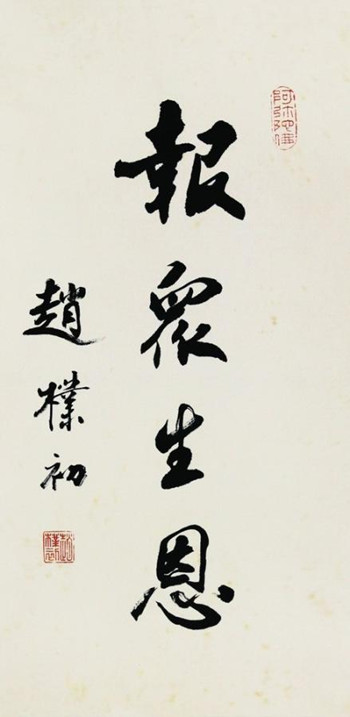 報眾生恩
趙樸初